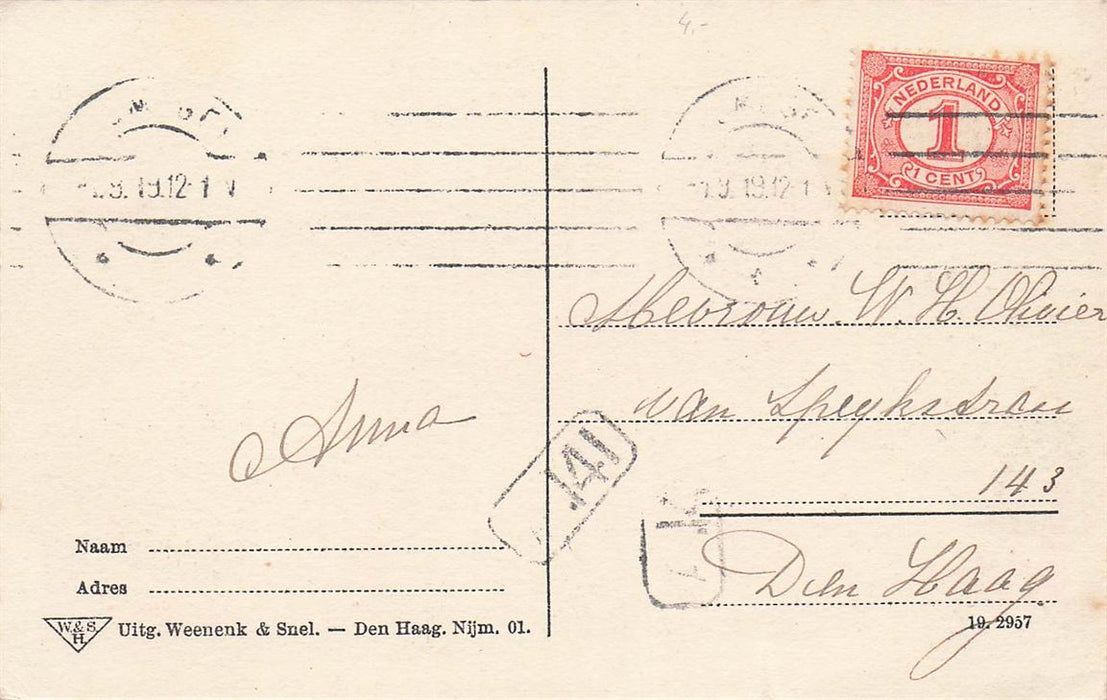 4.-
NEDERLAND
1
1 CENT
19.12-1
19.12-1
Mevrouw W. H. Olivier
van Speykstraat
143
Den Haag
Anna
141
Naam
Adres
W. & S.
H.
Uitg. Weenenk & Snel. — Den Haag. Nijm. 01.
19. 2957